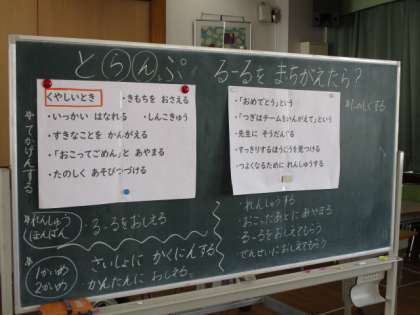 とらんぷ　るーるを まちがえたら？
くやしいとき　・きもちを おさえる
・いっかい はなれる　・しんこきゅう
・すきなことを かんがえる
・「おこってごめん」と あやまる
・たのしく あそびつづける
・「おめでとう」という
・「つぎはチームをいんがえて」という
・先生に そうだんする
・すっきりするほうこうを見つける
・つよくなるために れんしゅうする
＊たのしくする
＊てかげんする
＊れんしゅう
ほんばん
・るーるをおしえる
＊1かいめ
2かいめ
さいしょに かくにんする
・かんたんに おしえる。
・れんしゅうする
・おこったあとに あやまる
・るーるをおしえてもらう
・せんせいにおしえてもらう